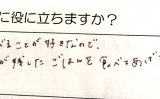 に役に立ちますか?
ることが好きなので、
が残したごはんを食べてあげ